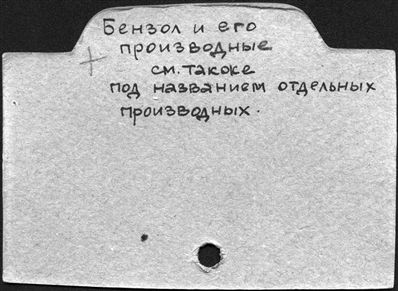 Бензол и его
производные
см. также
под названием отдельных
производных.